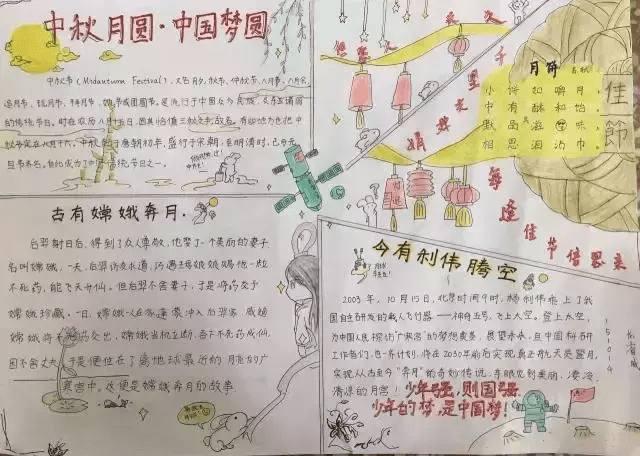 中秋月圆·中国梦圆
中秋节(Midautumn Festival),又名月夕、秋节、仲秋节、八月节、八月会、
追月节、玩月节、拜月节、
或团圆节,是流行于中国众多民族
的传统节日。时在农历八月十五日,因其恰值三秋之半故名。有些地方也把中
秋节定在八月十六。中秋节始于唐朝初年,盛行于宋朝,至明清时,已与元
旦节齐名,
月饼
苏轼
小饼如嚼月,
中有酥和饴
默品其滋味
相思泪沾巾
佳節
但愿人
长久
千里
共婵娟
每逢佳节倍思亲
古有嫦娥奔月.
后羿射日后,得到了众人尊敬,他娶了一个美丽的妻子
名叫嫦娥,一天,后羿访友求道,巧遇王母娘娘赐他一粒
不死药,能飞天升仙。但后羿不舍妻子,于是将药交于
嫦娥珍藏。一日,
冲入后羿家,威迫
嫦娥将不死药交出,嫦娥当机立断,吞下不死药成仙,
因不舍丈夫,于是便住在了离地球最近的月亮的广
寒宫中。这便是嫦娥奔月的故事.
今有利伟腾空
2003年,10月15日,北京时间9时,杨利伟乘上了我
国自主研发的载人飞行器——神舟五号,飞上太空。登上太空,
为中国人民探访“广寒宫”的梦想奠基,
且中国科研
工作者们,已一步计划,将在2030年前后实现真正的九天揽月,
实现从古至今“奔月”的奇妙传说,亲眼见到美丽、凄冷、
清凉的月宫!
少年强,则国强
少年的梦,是中国梦!